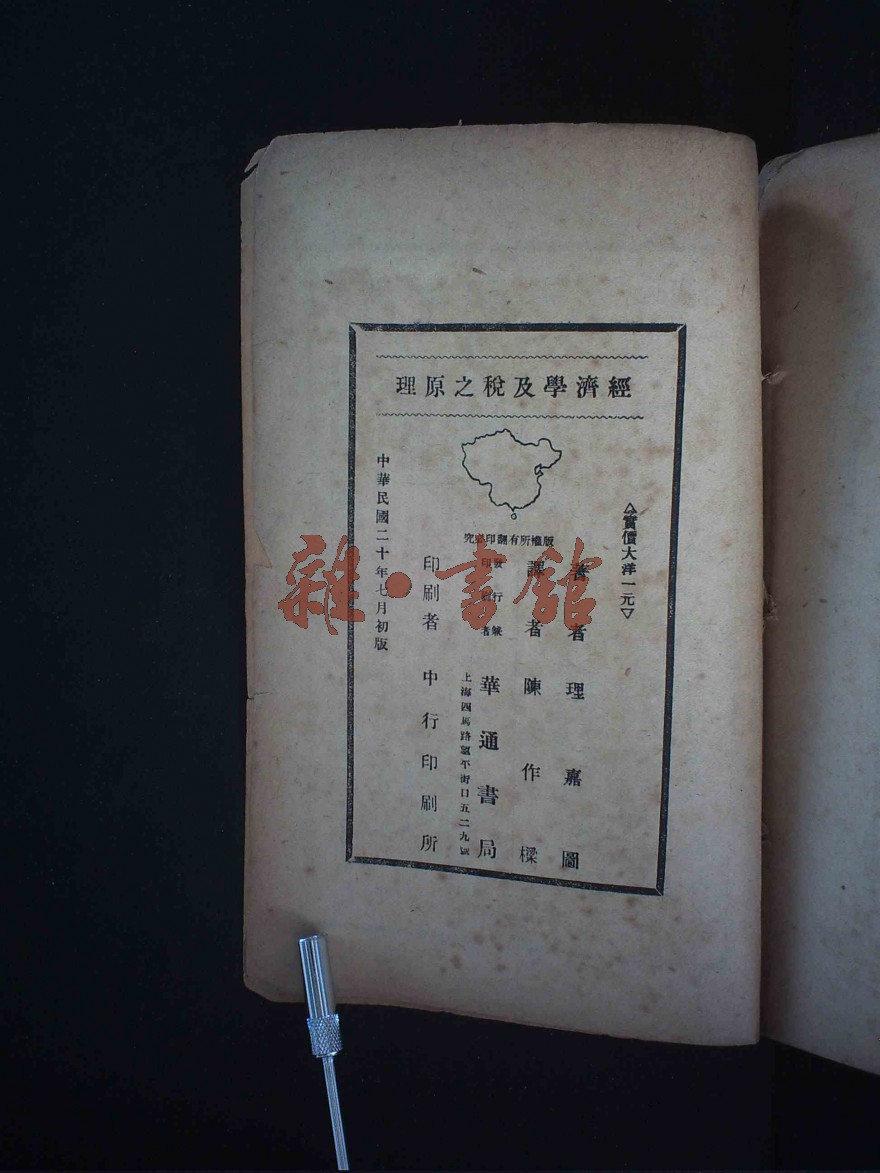 經濟學及稅之原理
版權所有翻印必究
△實價大洋一元▽
著者 理嘉圖
譯者 陳作樑
發行兼
印刷者
華通書局
上海四馬路望平街口五二九號
印刷者 中行印刷所
中華民國二十年七月初版
雜·書館